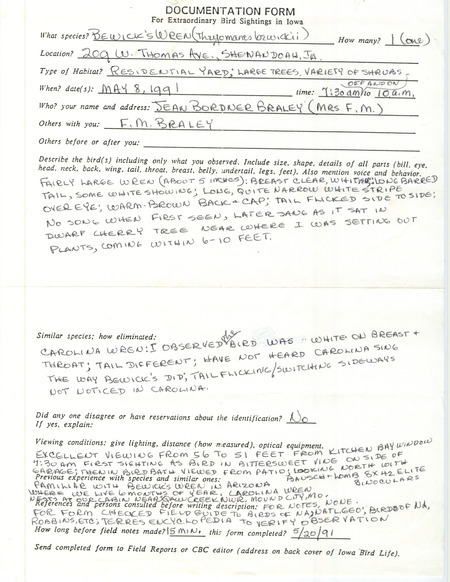 DOCUMENTATION FORM
For Extraordinary Bird Sightings in Iowa
What species? BEWICK'S WREN (Thryomanes bewickii) How many? 1 (one)
Location? 209 W. THOMAS AVE., SHENANDOAH, IA.
Type of Habitat? RESIDENTIAL YARD; LARGE TREES, VARIETY OF SHRUBS.
OFF AND ON
When? date(s): MAY 8, 1991 time: 7:30 am to 10 a.m.
Who? your name and address: JEAN BORDNER BRALEY (MRS F.M.)
Others with you: F.M. BRALEY
Others before or after you:
Describe the bird(s) including only what you observed. Include size, shape, details of all parts (bill, eye,
head, neck, back, wing, tail, throat, breast, belly, undertail, legs, feet). Also mention voice and behavior.
FAIRLY LARGE WREN (ABOUT 5 INCHES); BREAST CLEAR, WHITISH; LONG BARRED
TAIL, SOME WHITE SHOWING; LONG, QUITE NARROW WHITE STRIPE
OVER EYE; WARM-BROWN BACK + CAP; TAIL FLICKED SIDE TO SIDE;
NO SONG WHEN FIRST SEEN, LATER SANG AS IT SAT IN
DWARF CHERRY TREE NEAR WHERE I WAS SETTING OUT
PLANTS, COMING WITHIN 6-10 FEET.
Similar species; how eliminated:
CAROLINA WREN: I OBSERVED BIRD WAS WHITE ON BREAST +
THROAT; TAIL DIFFERENT; HAVE NOT HEARD CAROLINA SING
THE WAY BEWICK'S DID; TAIL FLICKING/SWITCHING SIDEWAYS
NOT NOTICED IN CAROLINA.
Did any one disagree or have reservations about the identification? No
If yes, explain:
Viewing conditions: give lighting, distance (how measured), optical equipment.
EXCELLENT VIEWING FROM 56 TO 51 FEET FROM KITCHEN BAY WINDOW
7:30 AM FIRST SIGHTING AS BIRD IN BITTERSWEET VINE ON SIDE OF
GARAGE; THEN IN BIRD BATH VIEWED FROM PATIO; LOOKING NORTH WITH
Previous experience with species and similar ones: BAUSCH + LOMB 8X42 ELITE
FAMILIAR WITH BEWICK'S WREN IN ARIZONA BINOCULARS
WHERE WE LIVE 6 MONTHS OF YEAR, CAROLINA WREN
NESTS AT OUR CABIN NEAR SQUAW CREEK NWR, MOUND CITY, MO.
References and persons consulted before writing description: FOR NOTES, NONE.
FOR FORM CHECKED FIELD GUIDE TO BIRDS OF NA, NAT'L GEO', BIRDS OF NA,
ROBBINS, ETC, TERRES ENCYCLOPEDIA TO VERIFY OBSERVATION
How long before field notes made? 5 min. this form completed? 5/20/91
Send completed form to Field Reports or CBC editor (address on back cover of Iowa Bird Life).